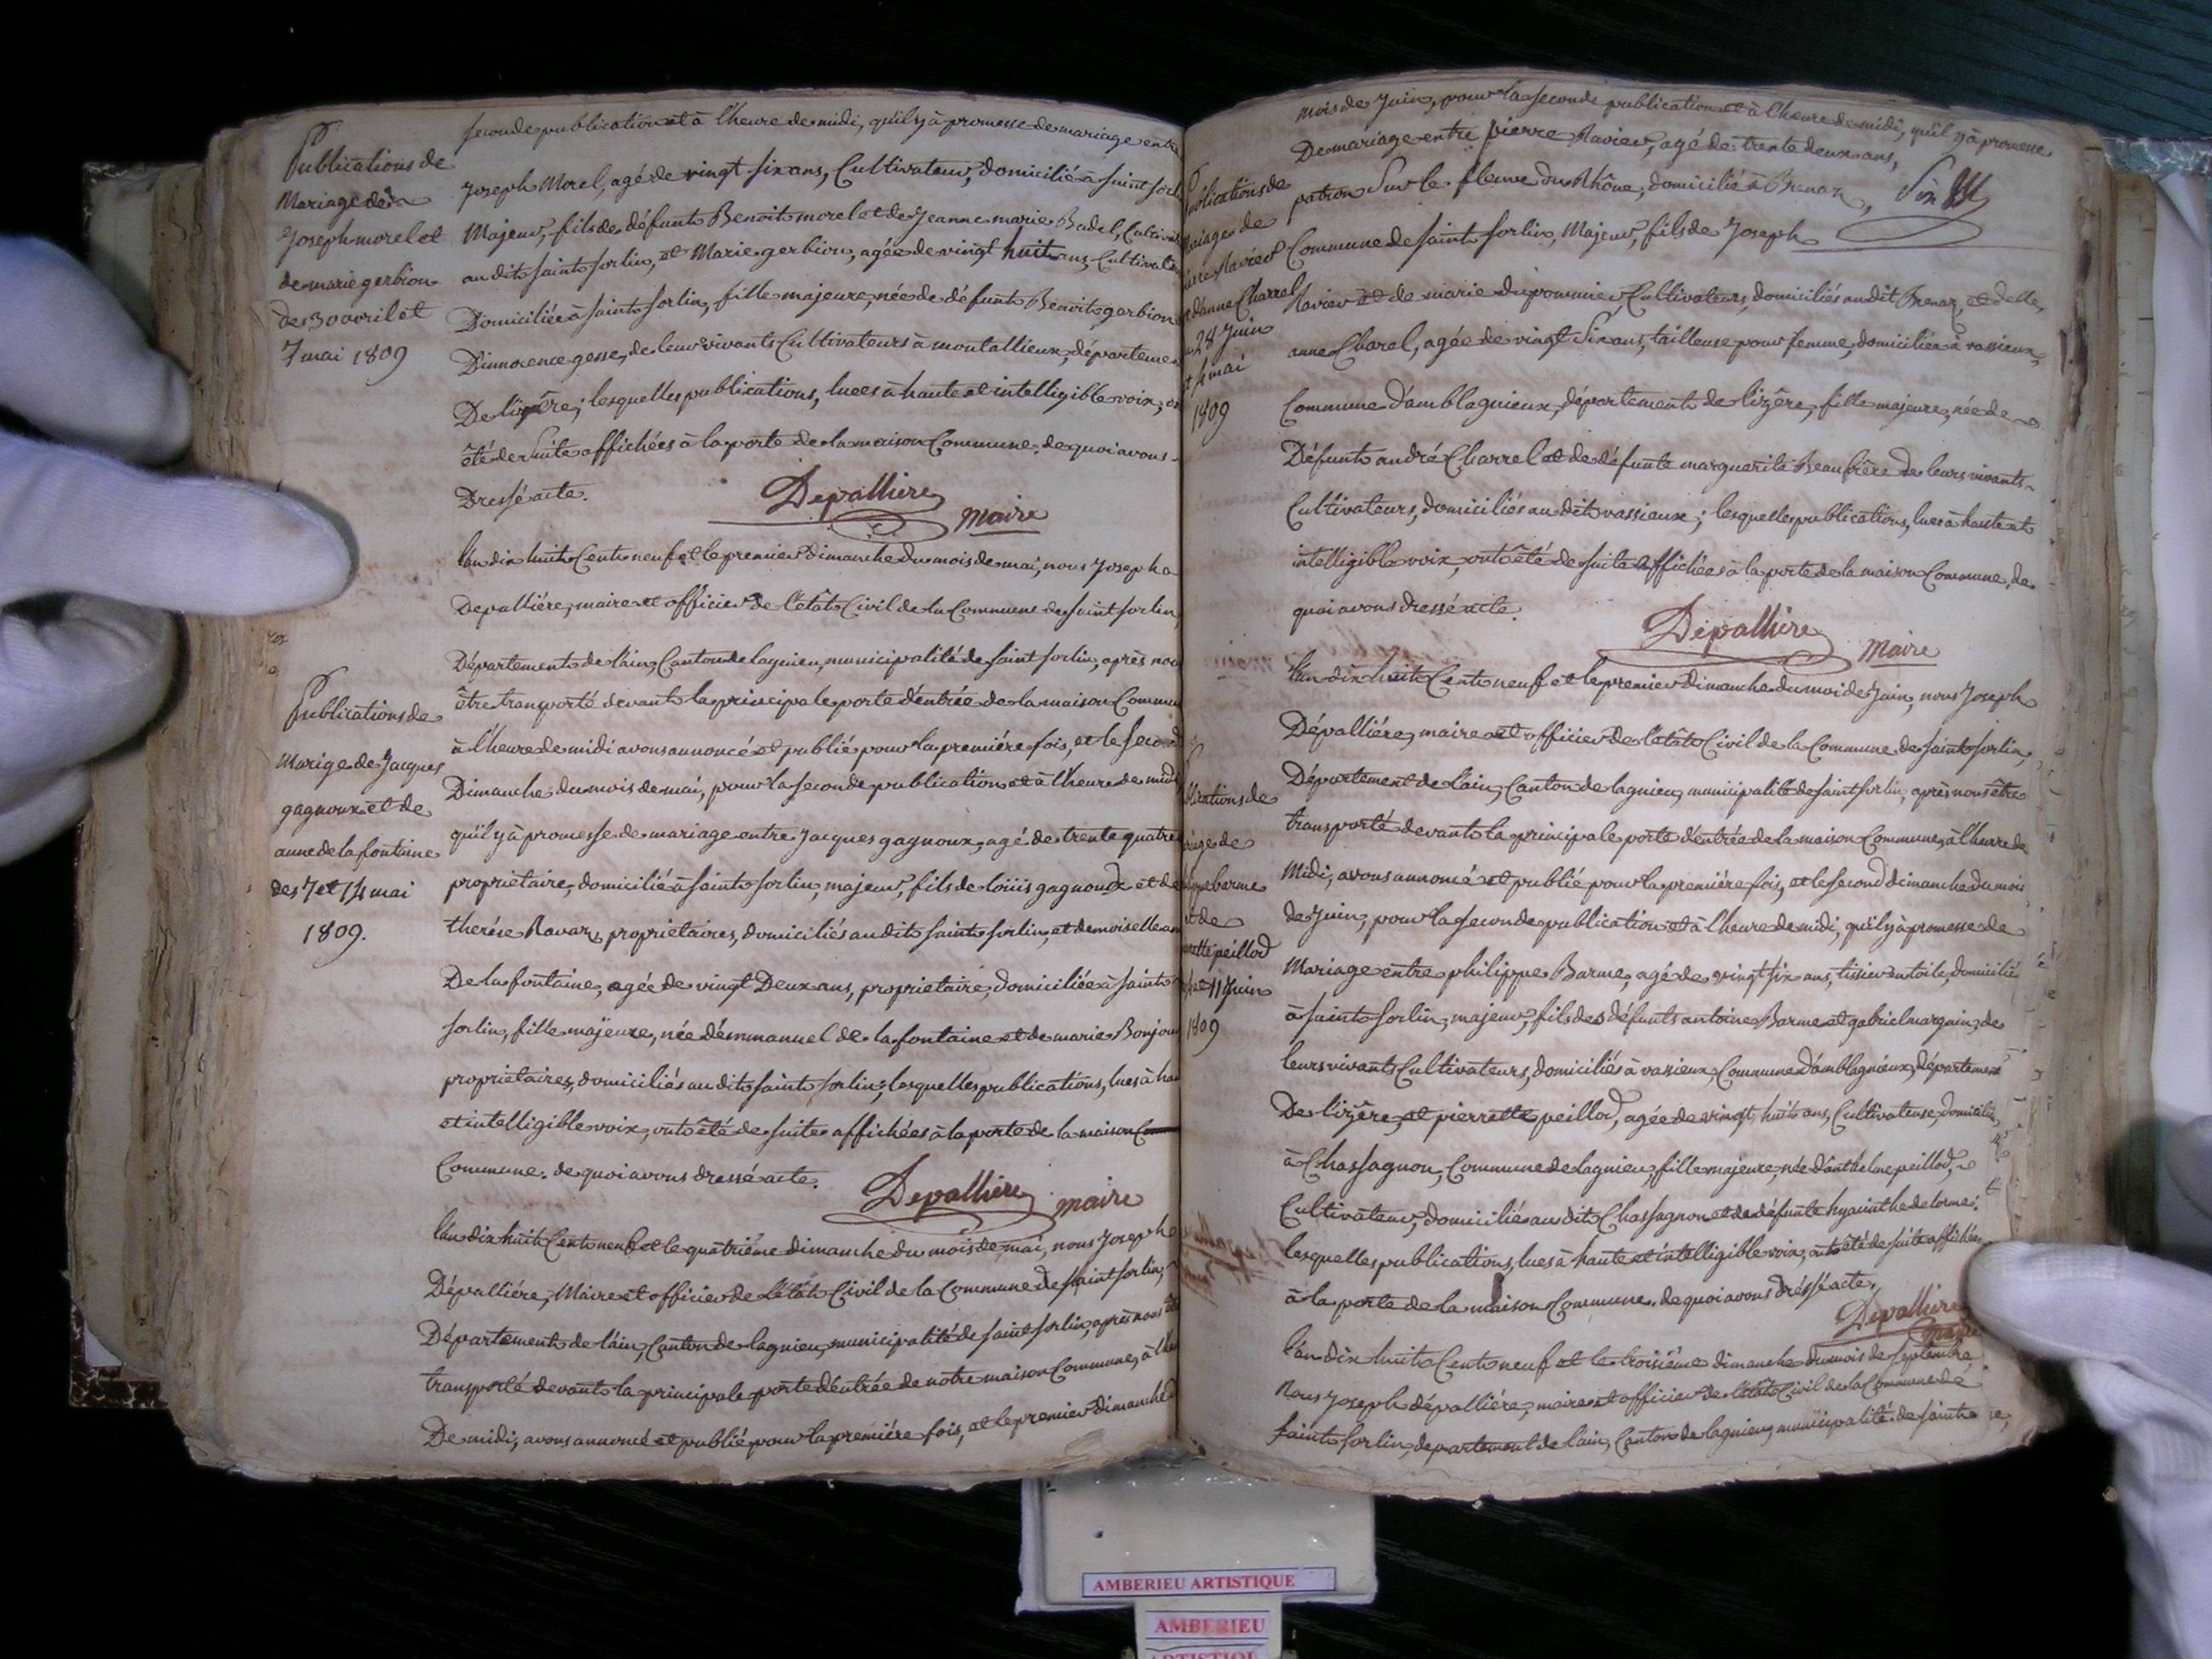 Publications de
Mariage de
Joseph morel et
de marie gerbion
des 30 avril et
7 mai 1809
seconde publication et à l'heure de midi, quil y à promesse de mariage entre
Joseph Morel, agé de vingt six ans, Cultivateur, domicilié à saint sorlin
Majeur, fils de défunt Benoit morel et de Jeanne marie Badel, Cultivat
au dit saint sorlin, et Marie gerbion, agée de vingt huit ans, Cultivat
Domiciliée à saint sorlin, fille majeure, née de défunt Benoit gerbion
D'innocence gesse, de leur vivants Cultivateurs à montallieux, départeme
De lizère; lesquelles publications, lues à haute et intelligible voix, on
été de suite affichées à la porte de la maison Commune. de quoi avons
Dressé acte.
Depalliere maire
Publications de
Marige de Jacques
gagnoux et de
anne de la fontaine
des 7 et 14 mai
1809.
l'an dix huit Cent neuf et le premier dimanche du mois de mai, nous Joseph
Depalliére, maire et officier de l'état Civil de la Commune de saint sorlin,
Département de l'ain, Canton de lagnieu, municipalité de saint sorlin, après nou
être transporté devant la principale porte d'entrée de la maison Commun
à l'heure de midi avons annoncé et publié pour la première fois, et le second
Dimanche du mois de mai, pour la seconde publication et à l'heure de midi
quil y à promesse de mariage entre Jacques gagnoux, agé de trente quatre
propriétaire, domicilié à saint sorlin, majeur, fils de loüis gagnoux et de
therése Ravaz, propriétaires, domiciliés au dit saint sorlin, et demoiselle an
De la fontaine, agée de vingt Deux ans, propriétaire, domiciliée à saint
sorlin, fille majeure, née démmanuel de la fontaine et de marie Bonjour
propriétaires, domiciliés au dit saint sorlin; lesquelles publications, lues à hau
et intelligible voix, ont été de suite affichées à la porte de la maison
Commune. de quoi avons dressé acte.
Depalliere maire
l'an dix huit Cent neuf et le quatriéme dimanche du mois de mai, nous Joseph
Dépalliére, Maire et officier de l'état Civil de la Commune de saint sorlin,
Département de l'ain, Canton de lagnieu, municipalité de saint sorlin, après nous êt
transporté devant la principale porte d'entrée de notre maison Commune, à l'heu
De midi, avons annoncé et publié pour la premiére fois, et le premier dimanche
mois de Juin, pour la seconde publication et à l'heure de midi, quil y à promesse
De mariage entre pierre Ravier, agé de trente deux ans,
patron Sur le fleuve du Rhône, domicilié à Brenaz,
Commune de saint sorlin, Majeur, fils de Joseph
Ravier et de marie dupommier, Cultivateurs, domiciliés au dit Brenaz, et delle
anne Charel, agée de vingt Six ans, tailleuse pour femme, domiciliée à vassieux,
Commune d'amblagnieux, département de lizère, fille majeure, née de
Défunt andré Charrel et de défunte marguerite Beaufrère de leurs vivants
Cultivateurs, domiciliés au dit vassieux; lesquelles publications, lues à haute et
intelligible voix, ont été de suite affichées à la porte de la maison Commune, de
quoi avons dressé acte.
Depalliere maire
ublications de
ariages de
ierre Ravier et
d'anne Charrel
28 Juin
et 4 mai
1809
l'an dix huit Cent neuf et le premier dimanche du moi de Juin, nous Joseph
Dépalliére, maire et officier de l'état Civil de la Commune de saint sorlin,
Département de l'ain, Canton de lagnieu, municipalité de saint sorlin, après nous être
transporté devant la principale porte d'entrée de la maison Commune, à l'heure de
Midi, avons annoncé et publié pour la premiére fois, et le second dimanche du moi
de Juin, pour la seconde publication et à l'heure de midi, quil y à promesse de
Mariage entre philippe Barme, agé de vingt six ans, tissier en toile, domicilié
à saint sorlin, majeur, fils des défunts antoine Barme et gabriel marguin, de
leurs vivants Cultivateurs, domiciliés à vassieux, Commune d'amblagnieux, département
De lizère, et pierrette peillod, agée de vingt huit ans, Cultivateuse, domiciliée
à Chassagnon, Commune de lagnieu, fille majeure, née d'anthelme peillod,
Cultivateur, domiciliés au dit Chassagnon et de défunte hyacinthe delorme.
lesquelles publications, lues à haute et intelligible voix, ont été de suite affichées
à la porte de la maison Commune. de quoi avons dréssé acte.
Depalliere
maire
blications de
riage de
ippe barme
et de
rette peillod
4 et 11 Juin
1809
l'an dix huit Cent neuf et le troisième dimanche du mois de septembre
Nous Joseph dépalliére, maire et officier de l'état Civil de la Commune de
saint sorlin, departement de l'ain, Canton de lagnieu, municipalité de saint
AMBERIEU ARTISTIQUE
AMBERIEU